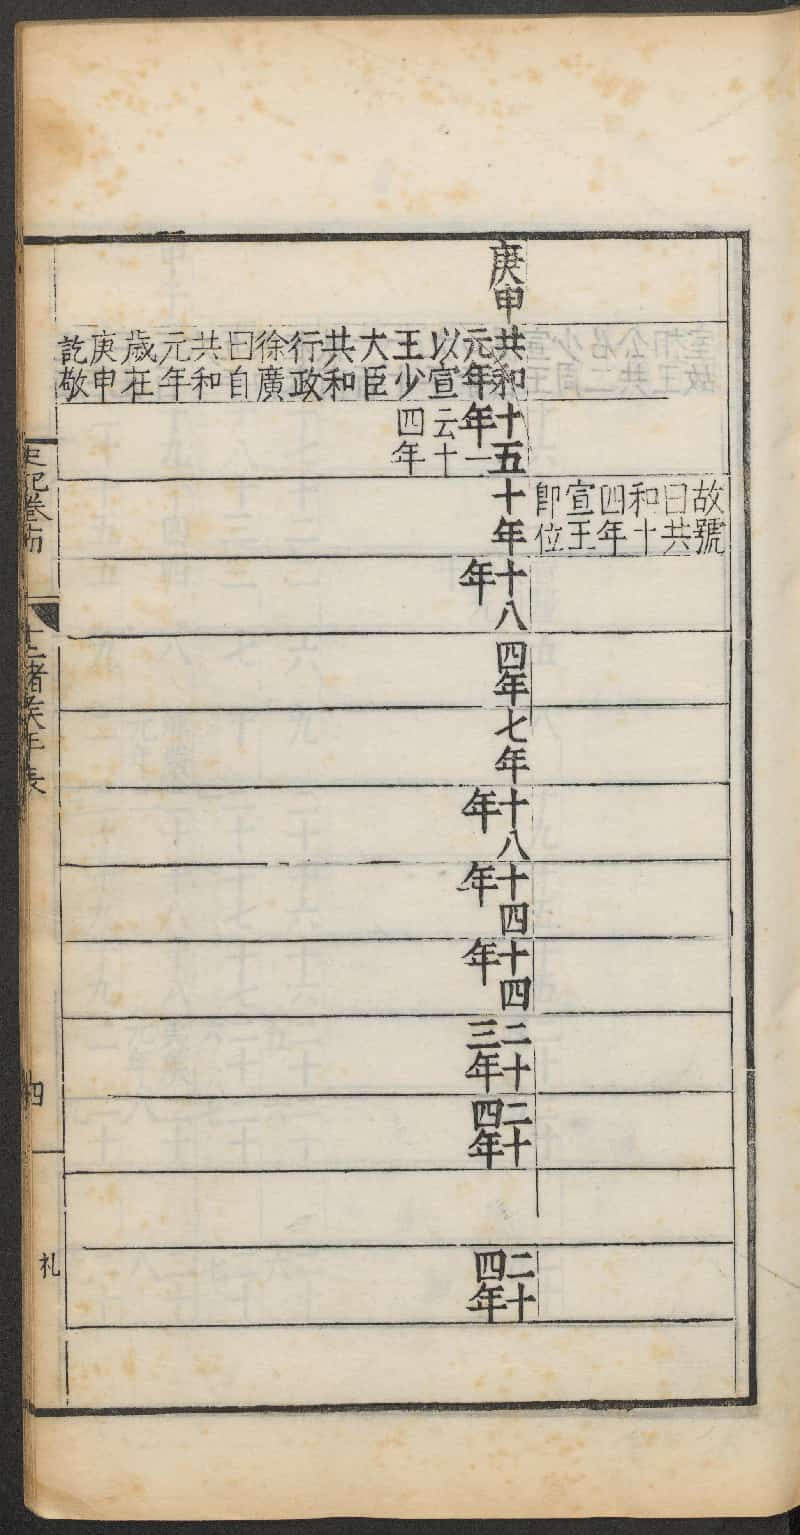 庚申
共和元年以宣王少大臣共和行政徐廣曰自共和元年歲在庚申訖敬
十五年一云十四年
故號曰共和十四年宣王卽位
十年
十八年
四年
七年
十八年
十四年
十四年
二十三年
二十四年
二十四年
史記卷
十二諸侯年表
四
札